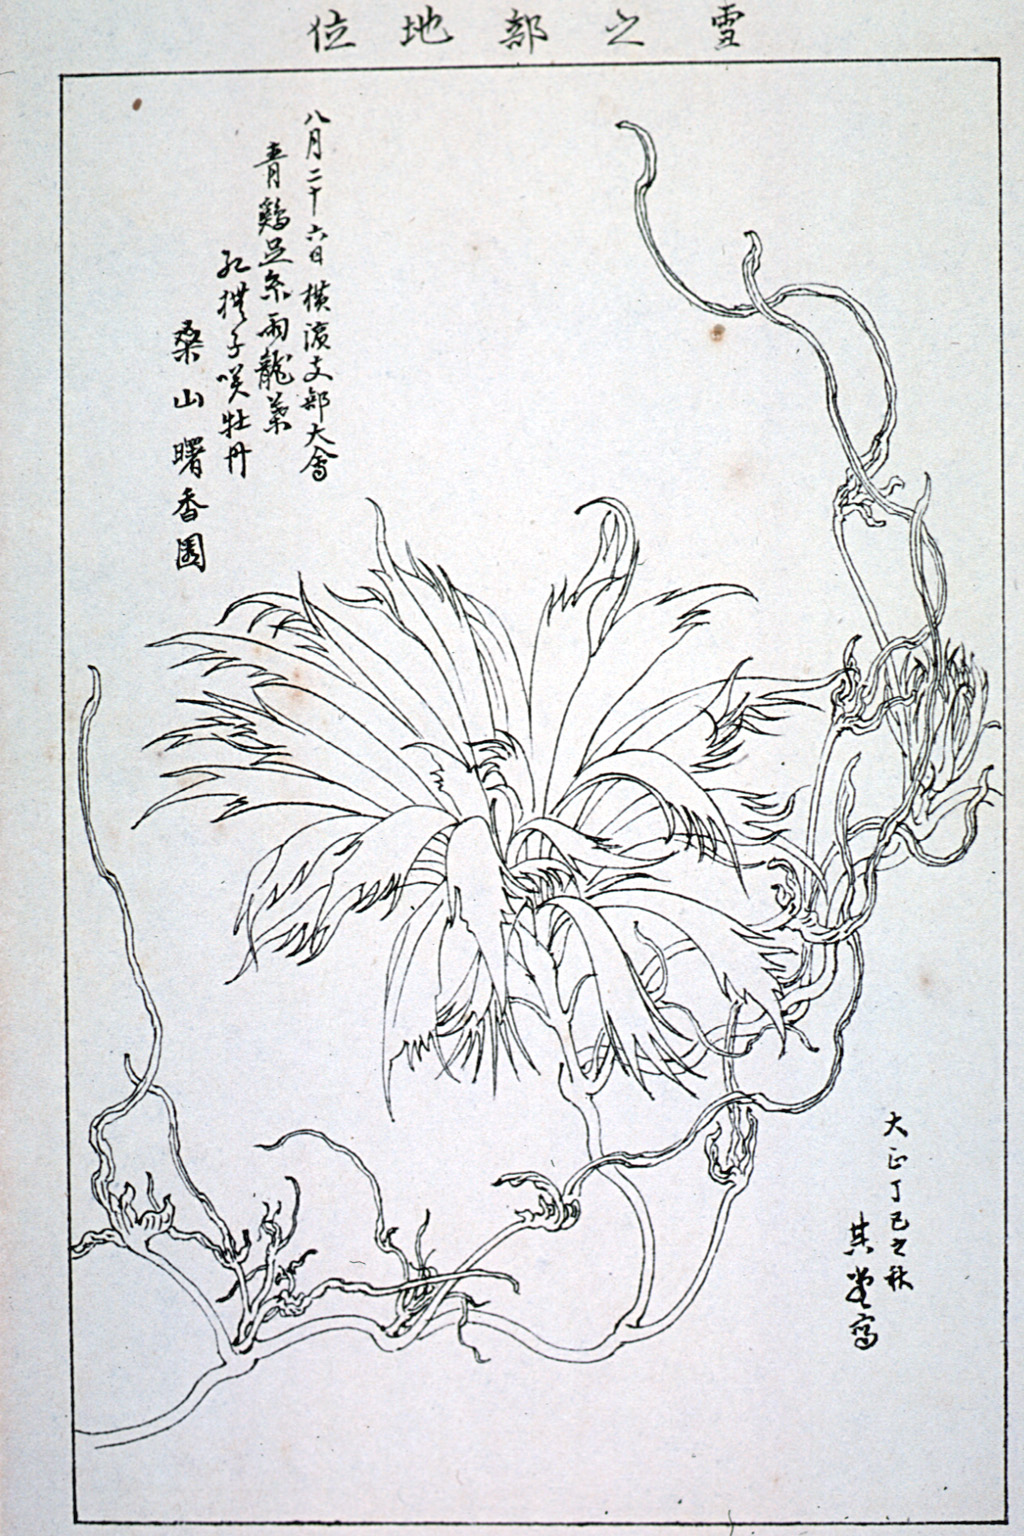 雪之部地位
八月二十六日横濱支部大會
青鷄足糸雨龍葉
紅撫子咲牡丹
桑山曙香園
大正丁巳之秋
其堂寫